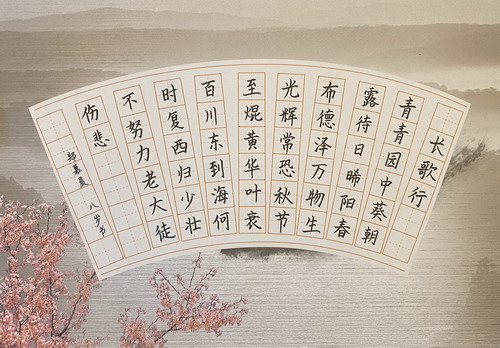 长歌行
青青园中葵朝
露待日晞阳春
布德泽万物生
光辉常恐秋节
至焜黄华叶衰
百川东到海何
时复西归少壮
不努力老大徒
伤悲
八岁书